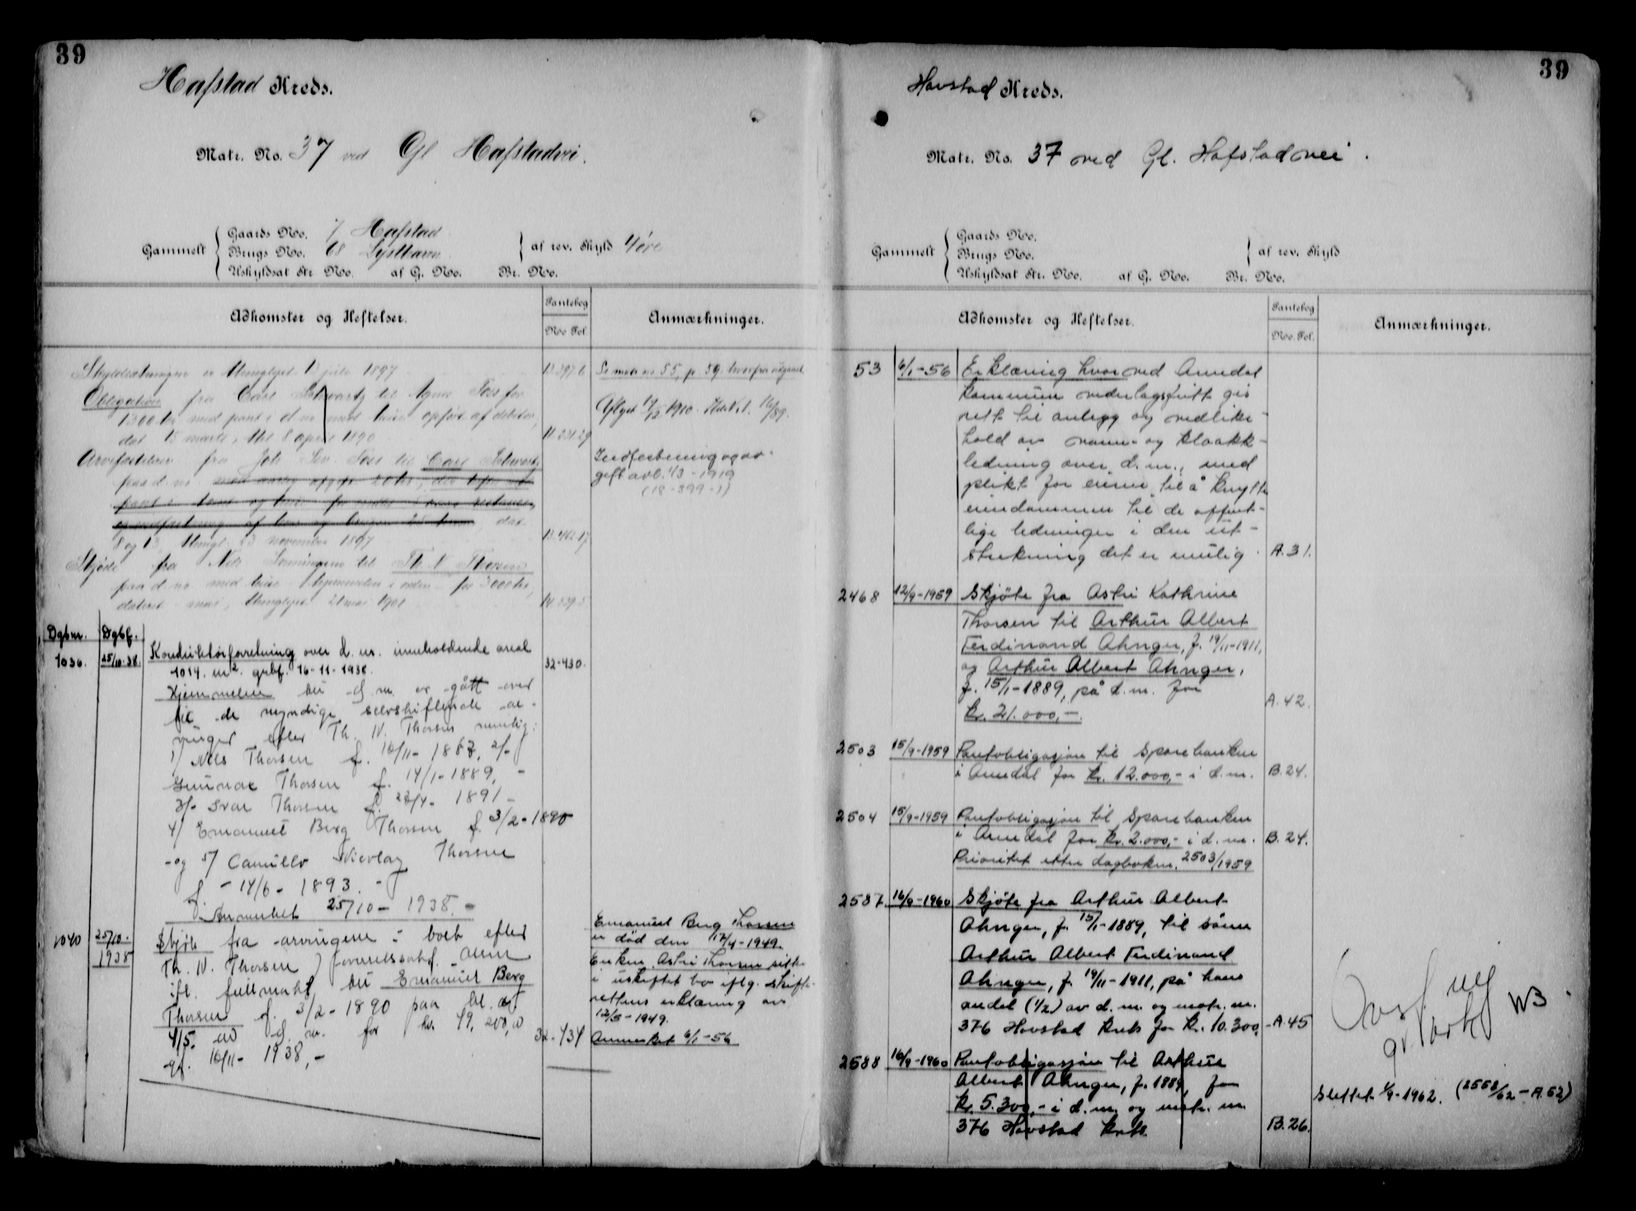 39
Hafstad Kreds.
Matr. No. 37 ved Gl Hafstadvei.
Gammelt
Gaards No. 7 Hafstad
Brugs No. 68
Uskyldsat Str. No. af G. No. Br. No.
af rev. Skyld 4 øre
Adkomster og Heftelser.
Pantebog
No. Fol.
Anmærkninger.
Skylddelingen er thinglyst 13 juli 1897
Obligation fra Carl Schwartz til Agnes Foss for
1300 kr med pant i d. no. med huse opført af debitor,
dat 15 marts, thl 8 april 1890
Arvefæstebrev fra Joh. Foss til Carl Schwartz
paa d. no.
dat.
8 og 13, thingl. 23 november 1897
Skjøde fra Nils til Th. N. Thorsen
paa d. no. med huse. Hjemmelen i orden. for 3000 kr,
dateret mai, thinglyst 21 mai 1901
Se matr. no. 55, p. 59 hvorfra udgaaet
Aflyst 1910.
Indfæstning og av-
gift avl. 1/3-1919
(18-399-1)
Dgbnr. Dgbf.
1036. 25/10.38.
Konduktørforretning over d. nr. inneholdende areal
1014. m². grbf. 16-11-1938.
32-430.
Hjemmelen til d. nr. er gått over
til de myndige selvskiftende ar-
vinger efter Th. N. Thorsen nemlig:
1) Nils Thorsen f. 10/11-1887, 2/-
Gunnar Thorsen f. 14/1-1889, -
3/- Ivar Thorsen f. 22/4- 1891 -
4/ Emanuel Berg Thorsen f. 3/2-1890
-og 5/ Camillo Nicolay Thorsen
f - 14/6- 1893. -
Anmerket 25/10- 1938. -
1040
25/10-
1938
Skjøte fra arvingene i boet efter
Th. N. Thorsen
ifl. fullmakt til Emanuel Berg
Thorsen f. 3/2-1890 paa
4/5. av d. nr. for kr.
gf. 16/11- 1938,-
32-434
Emanuel Berg Thorsen
er død den 17/4-1949.
Enken Astri Thorsen sitter
i uskiftet bo iflg. skifte-
rettens erklæring av
12/5-1949.
Anmerket 6/1-56
39
Havstad Kreds.
Matr. No. 37 ved Gl. Hafstadvei.
Gammelt
Gaards No.
Brugs No.
Uskyldsat Str. No. af G. No. Br. No.
af rev. Skyld
Adkomster og Heftelser.
Pantebog
No. Fol.
Anmærkninger.
53 6/1-56 Erklæring hvorved Arendal
kommune vederlagsfritt gis
rett til anlegg og vedlike-
hold av vann- og kloakk-
ledning over d. nr., med
plikt for eieren til å knytte
eiendommen til de offent-
lige ledninger i den ut-
strekning det er mulig. A.31.
2468 12/9-1959 Skjøte fra Astri Kathrine
Thorsen til Arthur Albert
Ferdinand Ahnger, f. 19/11-1911,
og Arthur Albert Ahnger,
f. 15/1-1889, på d. nr. for
kr. 21.000,-. A.42.
2503 15/9-1959 Pantobligasjon til Sparebanken
i Arendal for kr. 12.000,- i d. nr. B.24.
2504 15/9-1959 Pantobligasjon til Sparebanken
i Arendal for kr. 2.000,- i d. nr. B.24.
Prioritet etter dagboknr. 2503/1959
2587 16/9-1960 Skjøte fra Arthur Albert
Ahnger, f. 15/1-1889, til sønn
Arthur Albert Ferdinand
Ahnger, f. 19/11-1911, på hans
andel (1/2) av d. nr. og matr. nr.
376 Hovstad krets for kr. 10.300,- A.45
2588 16/9-1960 Pantobligasjon til Arthur
Albert Ahnger, f. 1889, for
kr. 5.300,- i d. nr. og matr. nr.
376 Hovstad krets. B.26.
Slettet 1/9-1962. (2558/62-A.52)